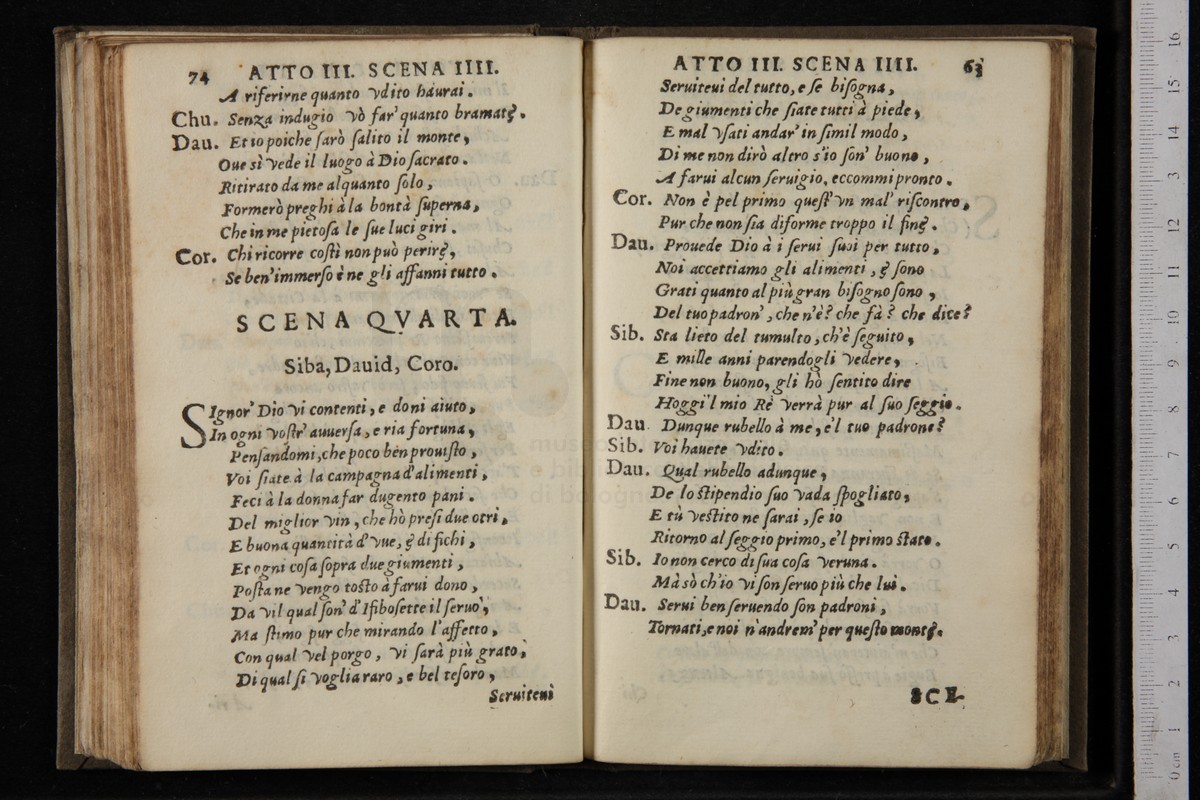 74 ATTO III. SCENA IIII.
A riferirne quanto vdito haurai.
Chu. Senza indugio vò far' quanto bramate.
Dau. Et io poiche sarò salito il monte,
Oue sì vede il luogo à Dio sacrato.
Ritirato da me alquanto solo,
Formerò preghi à la bontà superna,
Che in me pietosa le sue luci giri.
Cor. Chi ricorre costì non può perire,
Se ben' immerso è ne gli affanni tutto.
SCENA QVARTA.
Siba, Dauid, Coro.
SIgnor' Dio vi contenti, e doni aiuto,
In ogni vostr' auuersa, e ria fortuna,
Pensandomi, che poco ben prouisto,
Voi siate à la campagna d'alimenti,
Feci à la donna far dugento pani.
Del miglior vin, che hò presi due otri,
E buona quantità d'vue, e di fichi,
Et ogni cosa sopra due giumenti,
Posta ne vengo tosto à farui dono,
Da vil qual son' d'Isibosette il seruo,
Ma stimo pur che mirando l'affetto,
Con qual vel porgo, vi sarà più grato,
Di qual si voglia raro, e bel tesoro,
Seruiteui
ATTO III. SCENA IIII. 63
Seruiteui del tutto, e se bisogna,
De giumenti che siate tutti à piede,
E mal vsati andar' in simil modo,
Di me non dirò altro s'io son' buono,
A farui alcun seruigio, eccommi pronto.
Cor. Non è pel primo quest' vn mal' riscontro,
Pur che non sia diforme troppo il fine.
Dau. Prouede Dio à i serui suoi per tutto,
Noi accettiamo gli alimenti, e sono
Grati quanto al più gran bisogno sono,
Del tuo padron', che n'è? che fà? che dice?
Sib. Sta lieto del tumulto, ch'è seguito,
E mille anni parendogli vedere,
Fine non buono, gli hò sentito dire
Hoggi'l mio Rè verrà pur al suo seggio.
Dau. Dunque rubello à me, è'l tuo padrone?
Sib. Voi hauete vdito.
Dau. Qual rubello adunque,
De lo stipendio suo vada spogliato,
E tù vestito ne sarai, se io
Ritorno al seggio primo, e'l primo stato.
Sib. Io non cerco di sua cosa veruna.
Mà sò ch'io vi son seruo più che lui.
Dau. Serui ben seruendo son padroni,
Tornati, e noi n'andrem' per questo monte.
SCE-